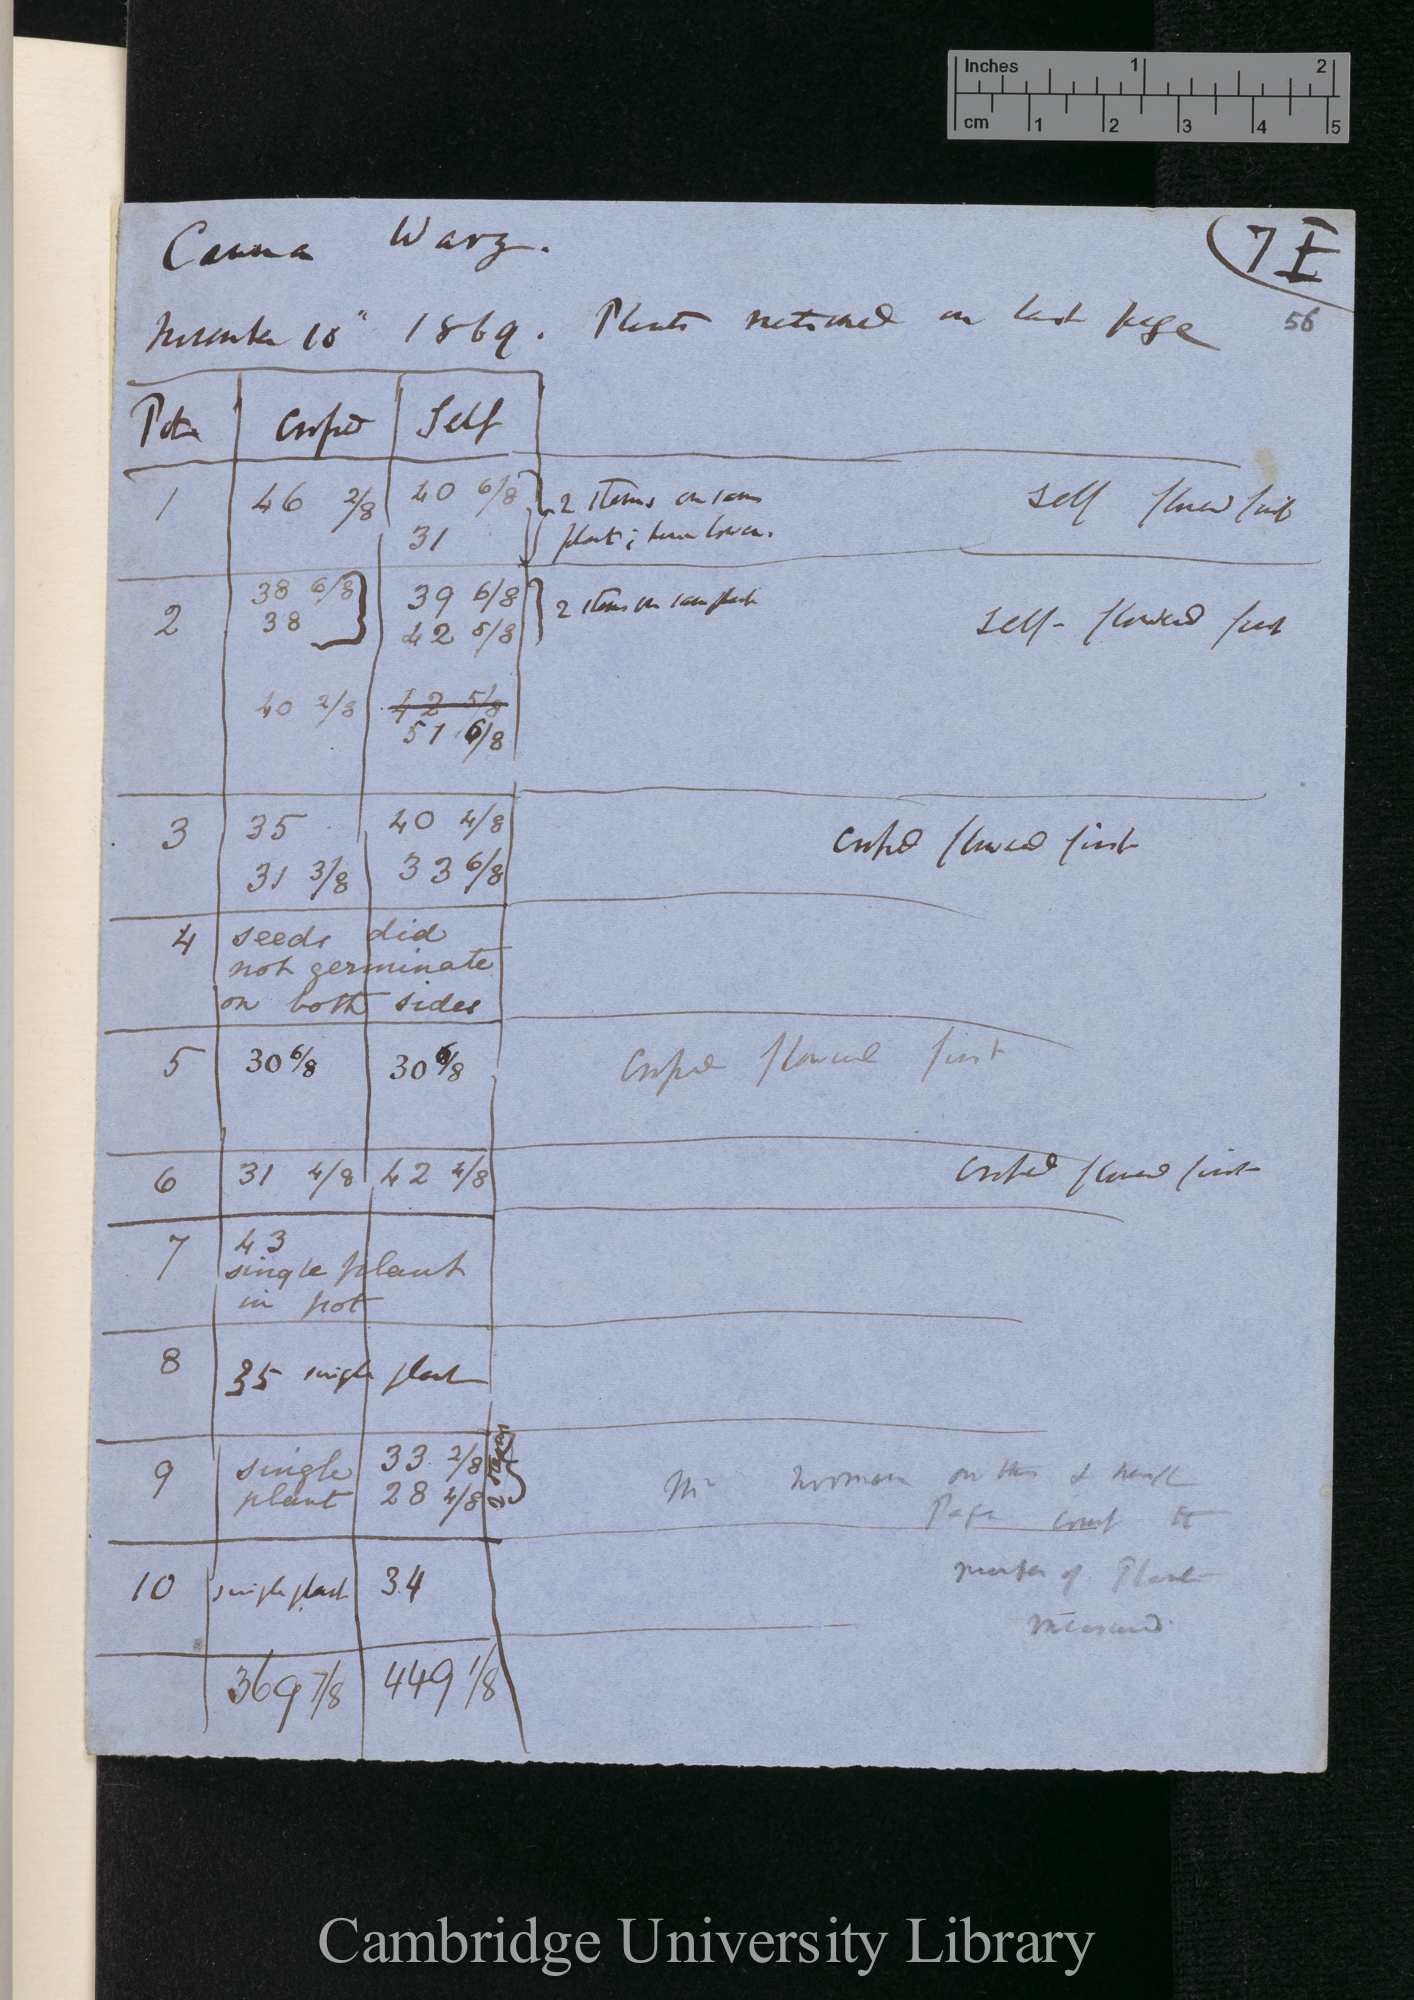 Inches 1 2
cm 1 2 3 4 5
7 I
Canna Warz.
56
November 10" 1869. Plants mentioned on last page
Pots Crossed Self
1 46 2/8 40 6/8 2 stems on same Self flowered first
31 plant;
2 38 6/8 39 6/8 2 stems on same plant Self-flowered first
38 42 5/8
40 2/8 42 5/8
51 6/8
3 35 40 4/8 Crossed flowered first
31 3/8 33 6/8
4 seeds did
not germinate
on both sides
5 30 6/8 30 6/8 Crossed flowered first
6 31 4/8 42 4/8 Crossed flowered first
7 43
single plant
in pot
8 35 single plant
9 single 33 2/8 2 stems Mr Norman on this &
plant 28 4/8 Page count the
10 single plant 34 number of Plants
measured.
369 7/8 449 1/8
Cambridge University Library